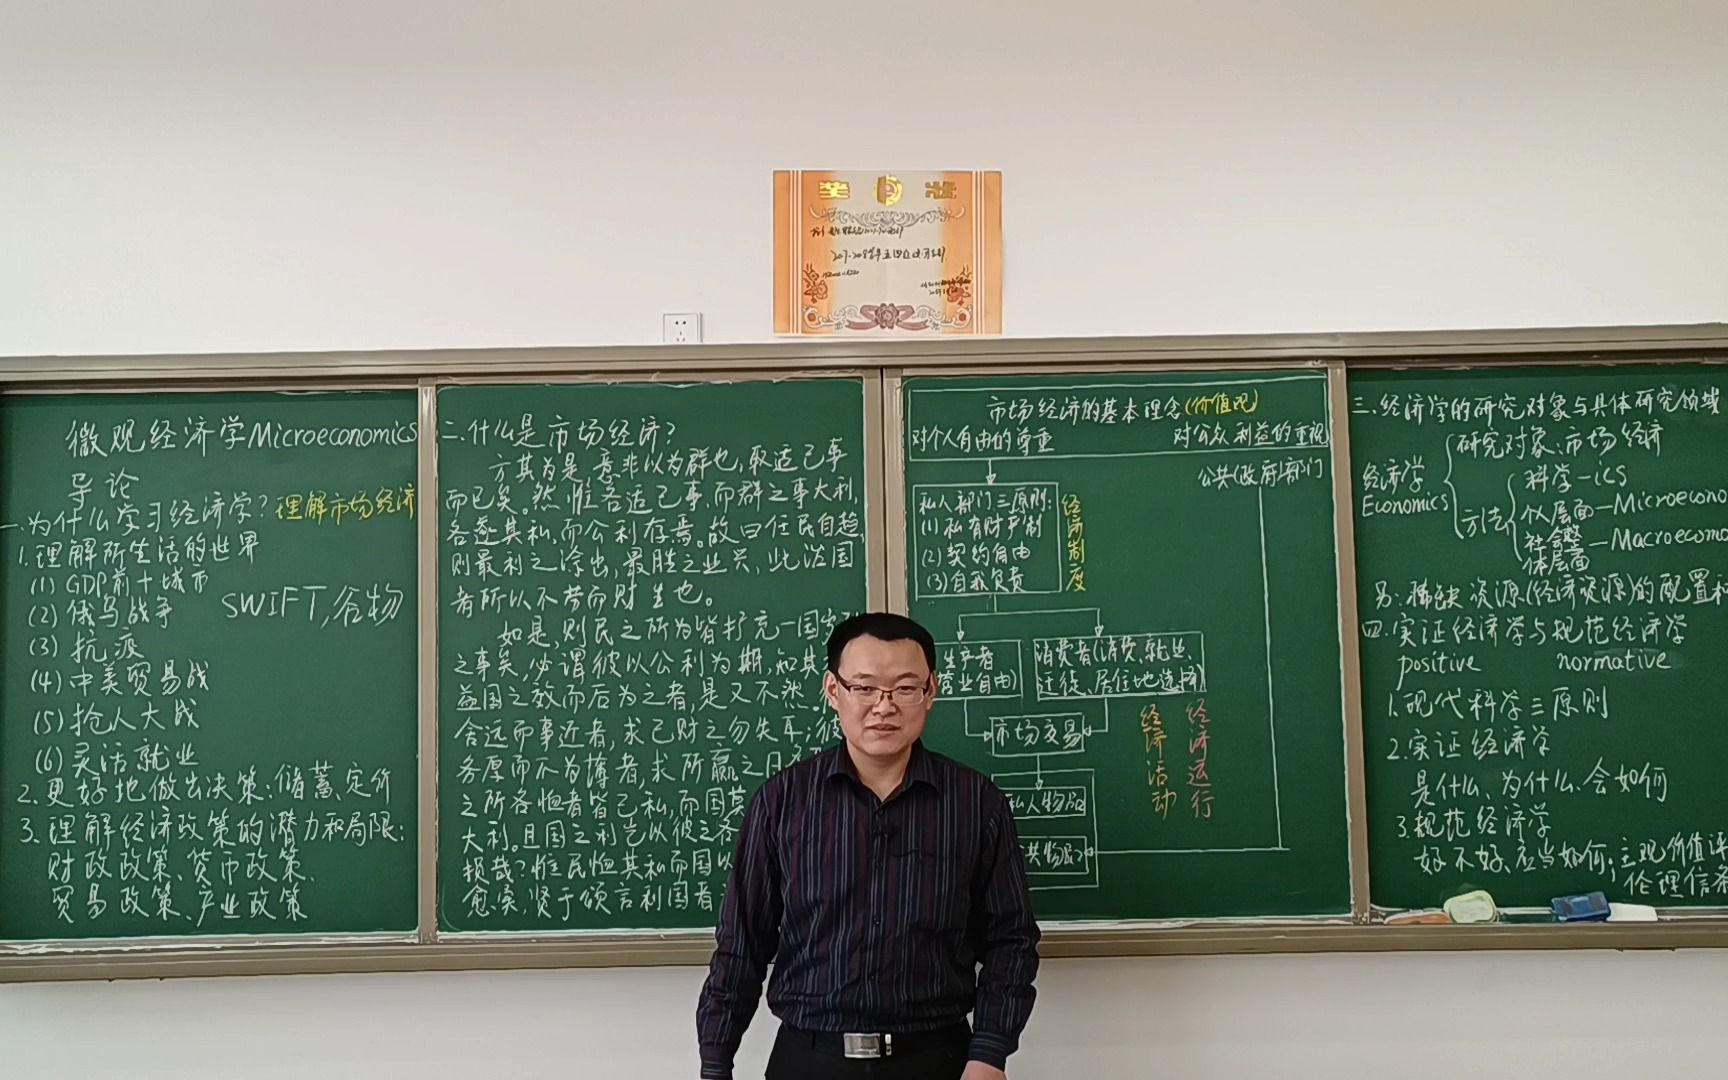 奖 状
微观经济学Microeconomics
导论
一.为什么学习经济学?理解市场经济
1.理解所生活的世界
(1) GDP前十城市
(2) 俄乌战争
SWIFT,谷物
(3) 抗疫
(4) 中美贸易战
(5) 抢人大战
(6) 灵活就业
2.更好地做出决策:储蓄、定价
3.理解经济政策的潜力和局限:
财政政策、货币政策、
贸易政策、产业政策
二.什么是市场经济?
方其为是,意非以为群也,取适己事
而已矣。然惟吾适己事,而群之事大利,
各遂其私,而公利存焉。故曰任民自趋,
则最利之涂出,最胜之业兴,此治国
者所以不劳而财生也。
如是,则民之所为皆扩充一国
之事矣,必谓彼以公利为期,知其
益国之效而后为之者,是又不然。
舍远而事近者,求己财之勿失耳;彼
务厚而不为薄者,求所赢之日
之所各恤者皆己私,而国莫
大利。且国之利岂以彼之各
损哉?惟民恤其私而国以
愈奂,贤于颂言利国者
市场经济的基本理念(价值观)
对个人自由的尊重 对公众利益的重视
公共(政府)部门
私人部门三原则:
(1) 私有财产制
(2) 契约自由
(3) 自我负责
经济制度
生产者
营业自由)
消费者(消费、就业、
迁徙、居住地选择)
市场交易
私人物品
共物品
经济活动
经济运行
三.经济学的研究对象与具体研究领域
经济学
Economics
研究对象:市场经济
方法
科学-ics
个人层面-Microecono
社会整
体层面
-Macroecono
另:稀缺资源(经济资源)的配置和
四.实证经济学与规范经济学
positive normative
1.现代科学三原则
2.实证经济学
是什么、为什么、会如何
3.规范经济学
好不好、应当如何;主观价值评
伦理信条